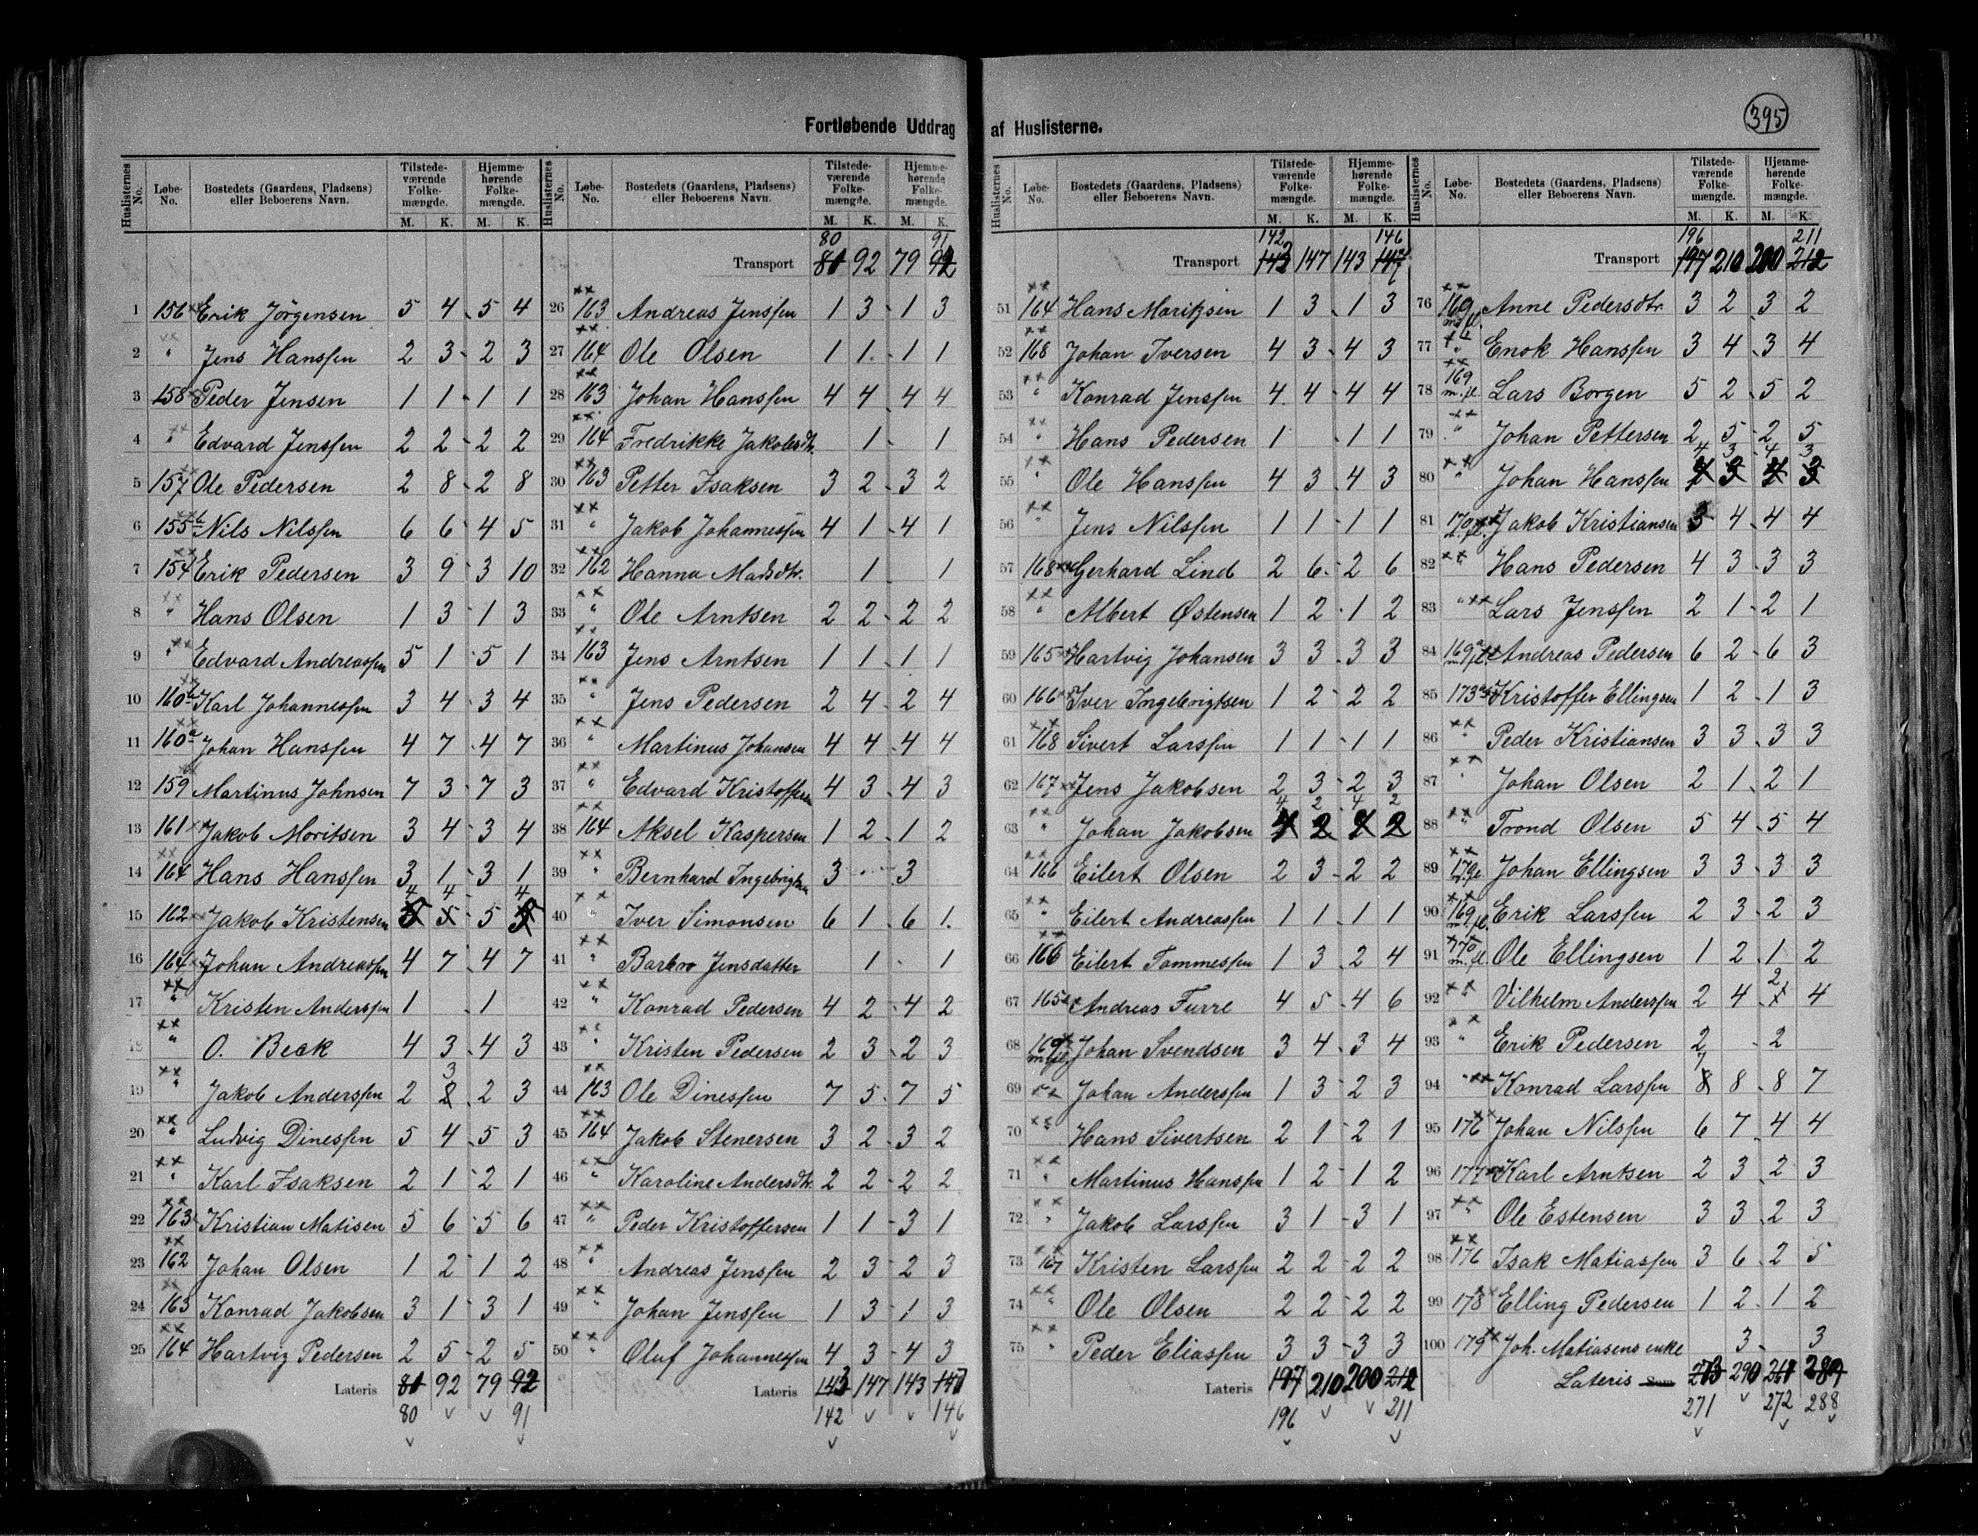 395
Fortløbende Uddrag af Huslisterne.
Huslisternes No. Løbe-No. Bostedets (Gaardens, Pladsens) eller Beboerens Navn. Tilstede-værende Folke-mængde. M. K. Hjemme-hørende Folke-mængde. M. K.
1 156 Erik Jörgensen 5 4 5 4
2 " Jens Hanssen 2 3 2 3
3 158 Peder Jensen 1 1 1 1
4 " Edvard Jenssen 2 2 2 2
5 157 Ole Pedersen 2 8 2 8
6 155b Nils Nilssen 6 6 4 5
7 154 Erik Pedersen 3 9 3 10
8 " Hans Olsen 1 3 1 3
9 " Edvard Andreassen 5 1 5 1
10 160b Karl Johannessen 3 4 3 4
11 160a Johan Hanssen 4 7 4 7
12 159 Martinus Johnsen 7 3 7 3
13 161 Jakob Moritsen 3 4 3 4
14 164 Hans Hanssen 3 1 3 1
15 162 Jakob Kristensen 4 4 5 4
16 164 Johan Andreassen 4 7 4 7
17 " Kristen Anderssen 1 1
18 " O. Beck 4 3 4 3
19 " Jakob Anderssen 2 3 2 3
20 " Ludvig Dinessen 5 4 5 3
21 " Karl Isaksen 2 1 2 1
22 163 Kristian Matisen 5 6 5 6
23 162 Johan Olsen 1 2 1 2
24 163 Konrad Jakobsen 3 1 3 1
25 164 Hartvig Pedersen 2 5 2 5
Lateris 81 92 79 92
80 91
Huslisternes No. Løbe-No. Bostedets (Gaardens, Pladsens) eller Beboerens Navn. Tilstede-værende Folke-mængde. M. K. Hjemme-hørende Folke-mængde. M. K.
80 91
Transport 81 92 79 92
26 163 Andreas Jenssen 1 3 1 3
27 164 Ole Olsen 1 1 1 1
28 163 Johan Hanssen 4 4 4 4
29 164 Fredrikke Jakobsdtr. 1 1
30 163 Petter Isaksen 3 2 3 2
31 " Jakob Johannessen 4 1 4 1
32 162 Hanna Madsdtr. 1 1
33 " Ole Arntsen 2 2 2 2
34 163 Jens Arntsen 1 1 1 1
35 " Jens Pedersen 2 4 2 4
36 " Martinus Johansen 4 4 4 4
37 " Edvard Kristoffersen 4 3 4 3
38 164 Aksel Kaspersen 1 2 1 2
39 " Bernhard Ingebrigtsen 3 3
40 Iver Simonsen 6 1 6 1
41 " Barbro Jensdatter 1 1
42 " Konrad Pedersen 4 2 4 2
43 " Kristen Pedersen 2 3 2 3
44 163 Ole Dinessen 7 5 7 5
45 164 Jakob Stenersen 3 2 3 2
46 " Karoline Andersdtr. 2 2 2 2
47 " Peder Kristoffersen 1 1 3 1
48 " Andreas Jenssen 2 3 2 3
49 " Johan Jenssen 1 3 1 3
50 " Oluf Johannessen 4 3 4 3
Lateris 143 147 143 147
142 146
Huslisternes No. Løbe-No. Bostedets (Gaardens, Pladsens) eller Beboerens Navn. Tilstede-værende Folke-mængde. M. K. Hjemme-hørende Folke-mængde. M. K.
142 146
Transport 143 147 143 147
51 164 Hans Moritzsen 1 3 1 3
52 168 Johan Iversen 4 3 4 3
53 " Konrad Jenssen 4 4 4 4
54 " Hans Pedersen 1 1 1
55 " Ole Hanssen 4 3 4 3
56 " Jens Nilssen 1 1 1 1
57 168 Gerhard Lind 2 6 2 6
58 " Albert Østensen 1 2 1 2
59 165 Hartvig Johansen 3 3 3 3
60 166 Iver Ingebrigtsen 1 2 2 2
61 168 Sivert Larssen 1 1 1 1
62 167 Jens Jakobsen 2 3 2 3
63 " Johan Jakobsen 4 2 4 2
64 166 Eilert Olsen 2 3 2 2
65 " Eilert Andreassen 1 1 1 1
66 166 Eilert Tommessen 1 3 2 4
67 165 Andreas Furre 4 5 4 6
68 169 Johan Svendsen 3 4 3 4
69 Johan Anderssen 1 3 2 3
70 " Hans Sivertsen 2 1 2 1
71 " Martinus Hanssen 1 2 1 2
72 " Jakob Larssen 3 1 3 1
73 167 Kristen Larssen 2 2 2 2
74 " Ole Olsen 2 2 2 2
75 " Peder Eliassen 3 3 3 3
Lateris 197 210 200 212
196 211
Huslisternes No. Løbe-No. Bostedets (Gaardens, Pladsens) eller Beboerens Navn. Tilstede-værende Folke-mængde. M. K. Hjemme-hørende Folke-mængde. M. K.
196 211
Transport 197 210 200 212
76 169 m. fl. Anne Pedersdtr. 3 2 3 2
77 " Enok Hanssen 3 4 3 4
78 169 m. fl. Lars Borgen 5 2 5 2
79 " Johan Pettersen 2 5 2 5
80 " Johan Hanssen 4 3 4 3
81 170 m. fl. Jakob Kristiansen 3 4 4 4
82 " Hans Pedersen 4 3 3 3
83 " Lars Jenssen 2 1 2 1
84 169a m. fl. Andreas Pedersen 6 2 6 3
85 173 Kristoffer Ellingsen 1 2 1 3
86 " Peder Kristiansen 3 3 3 3
87 " Johan Olsen 2 1 2 1
88 " Trond Olsen 5 4 5 4
89 Johan Ellingsen 3 3 3 3
90 169 m. fl. Erik Larssen 2 3 2 3
91 170 m. fl. Ole Ellingsen 1 2 1 2
92 " Vilhelm Anderssen 2 4 2 4
93 " Erik Pedersen 2 2
94 " Konrad Larssen 7 8 8 7
95 176 Johan Nilssen 6 7 4 4
96 177 Karl Arntsen 2 3 2 3
97 " Ole Estensen 3 3 2 3
98 176 Isak Matiassen 3 6 2 5
99 178 Elling Pedersen 1 2 1 2
100 179 Joh. Matiasens enke 3 3
Lateris Sum 273 290 289
271 272 288